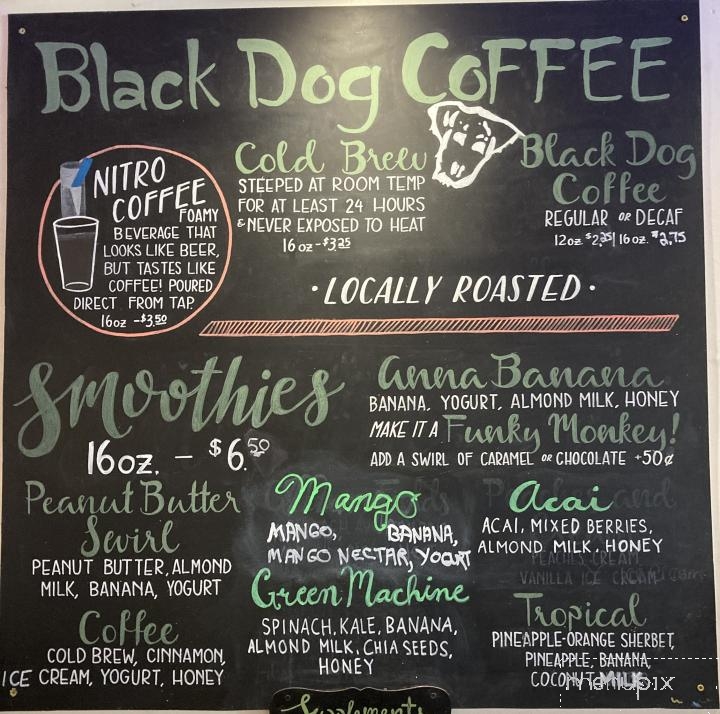 Black Dog COFFEE
NITRO
COFFEE
FOAMY
BEVERAGE THAT
LOOKS LIKE BEER,
BUT TASTES LIKE
COFFEE! POURED
DIRECT FROM TAP.
16oz - $3.50
Cold Brew
STEEPED AT ROOM TEMP
FOR AT LEAST 24 HOURS
& NEVER EXPOSED TO HEAT
16oz - $3.25
Black Dog
Coffee
REGULAR OR DECAF
12oz $2.25 | 16oz. $2.75
· LOCALLY ROASTED ·
Smoothies
16oz. - $6.50
Anna Banana
BANANA, YOGURT, ALMOND MILK, HONEY
MAKE IT A Funky Monkey!
ADD A SWIRL OF CARAMEL OR CHOCOLATE +50¢
Peanut Butter
Swirl
PEANUT BUTTER, ALMOND
MILK, BANANA, YOGURT
Coffee
COLD BREW, CINNAMON,
ICE CREAM, YOGURT, HONEY
Mango
MANGO, BANANA,
MANGO NECTAR, YOGURT
Green Machine
SPINACH, KALE, BANANA,
ALMOND MILK, CHIA SEEDS,
HONEY
Acai
ACAI, MIXED BERRIES,
ALMOND MILK, HONEY
PEACHES, CREAM,
VANILLA ICE CREAM
Tropical
PINEAPPLE-ORANGE SHERBET,
PINEAPPLE, BANANA,
COCONUT MILK
menupix
Supplements